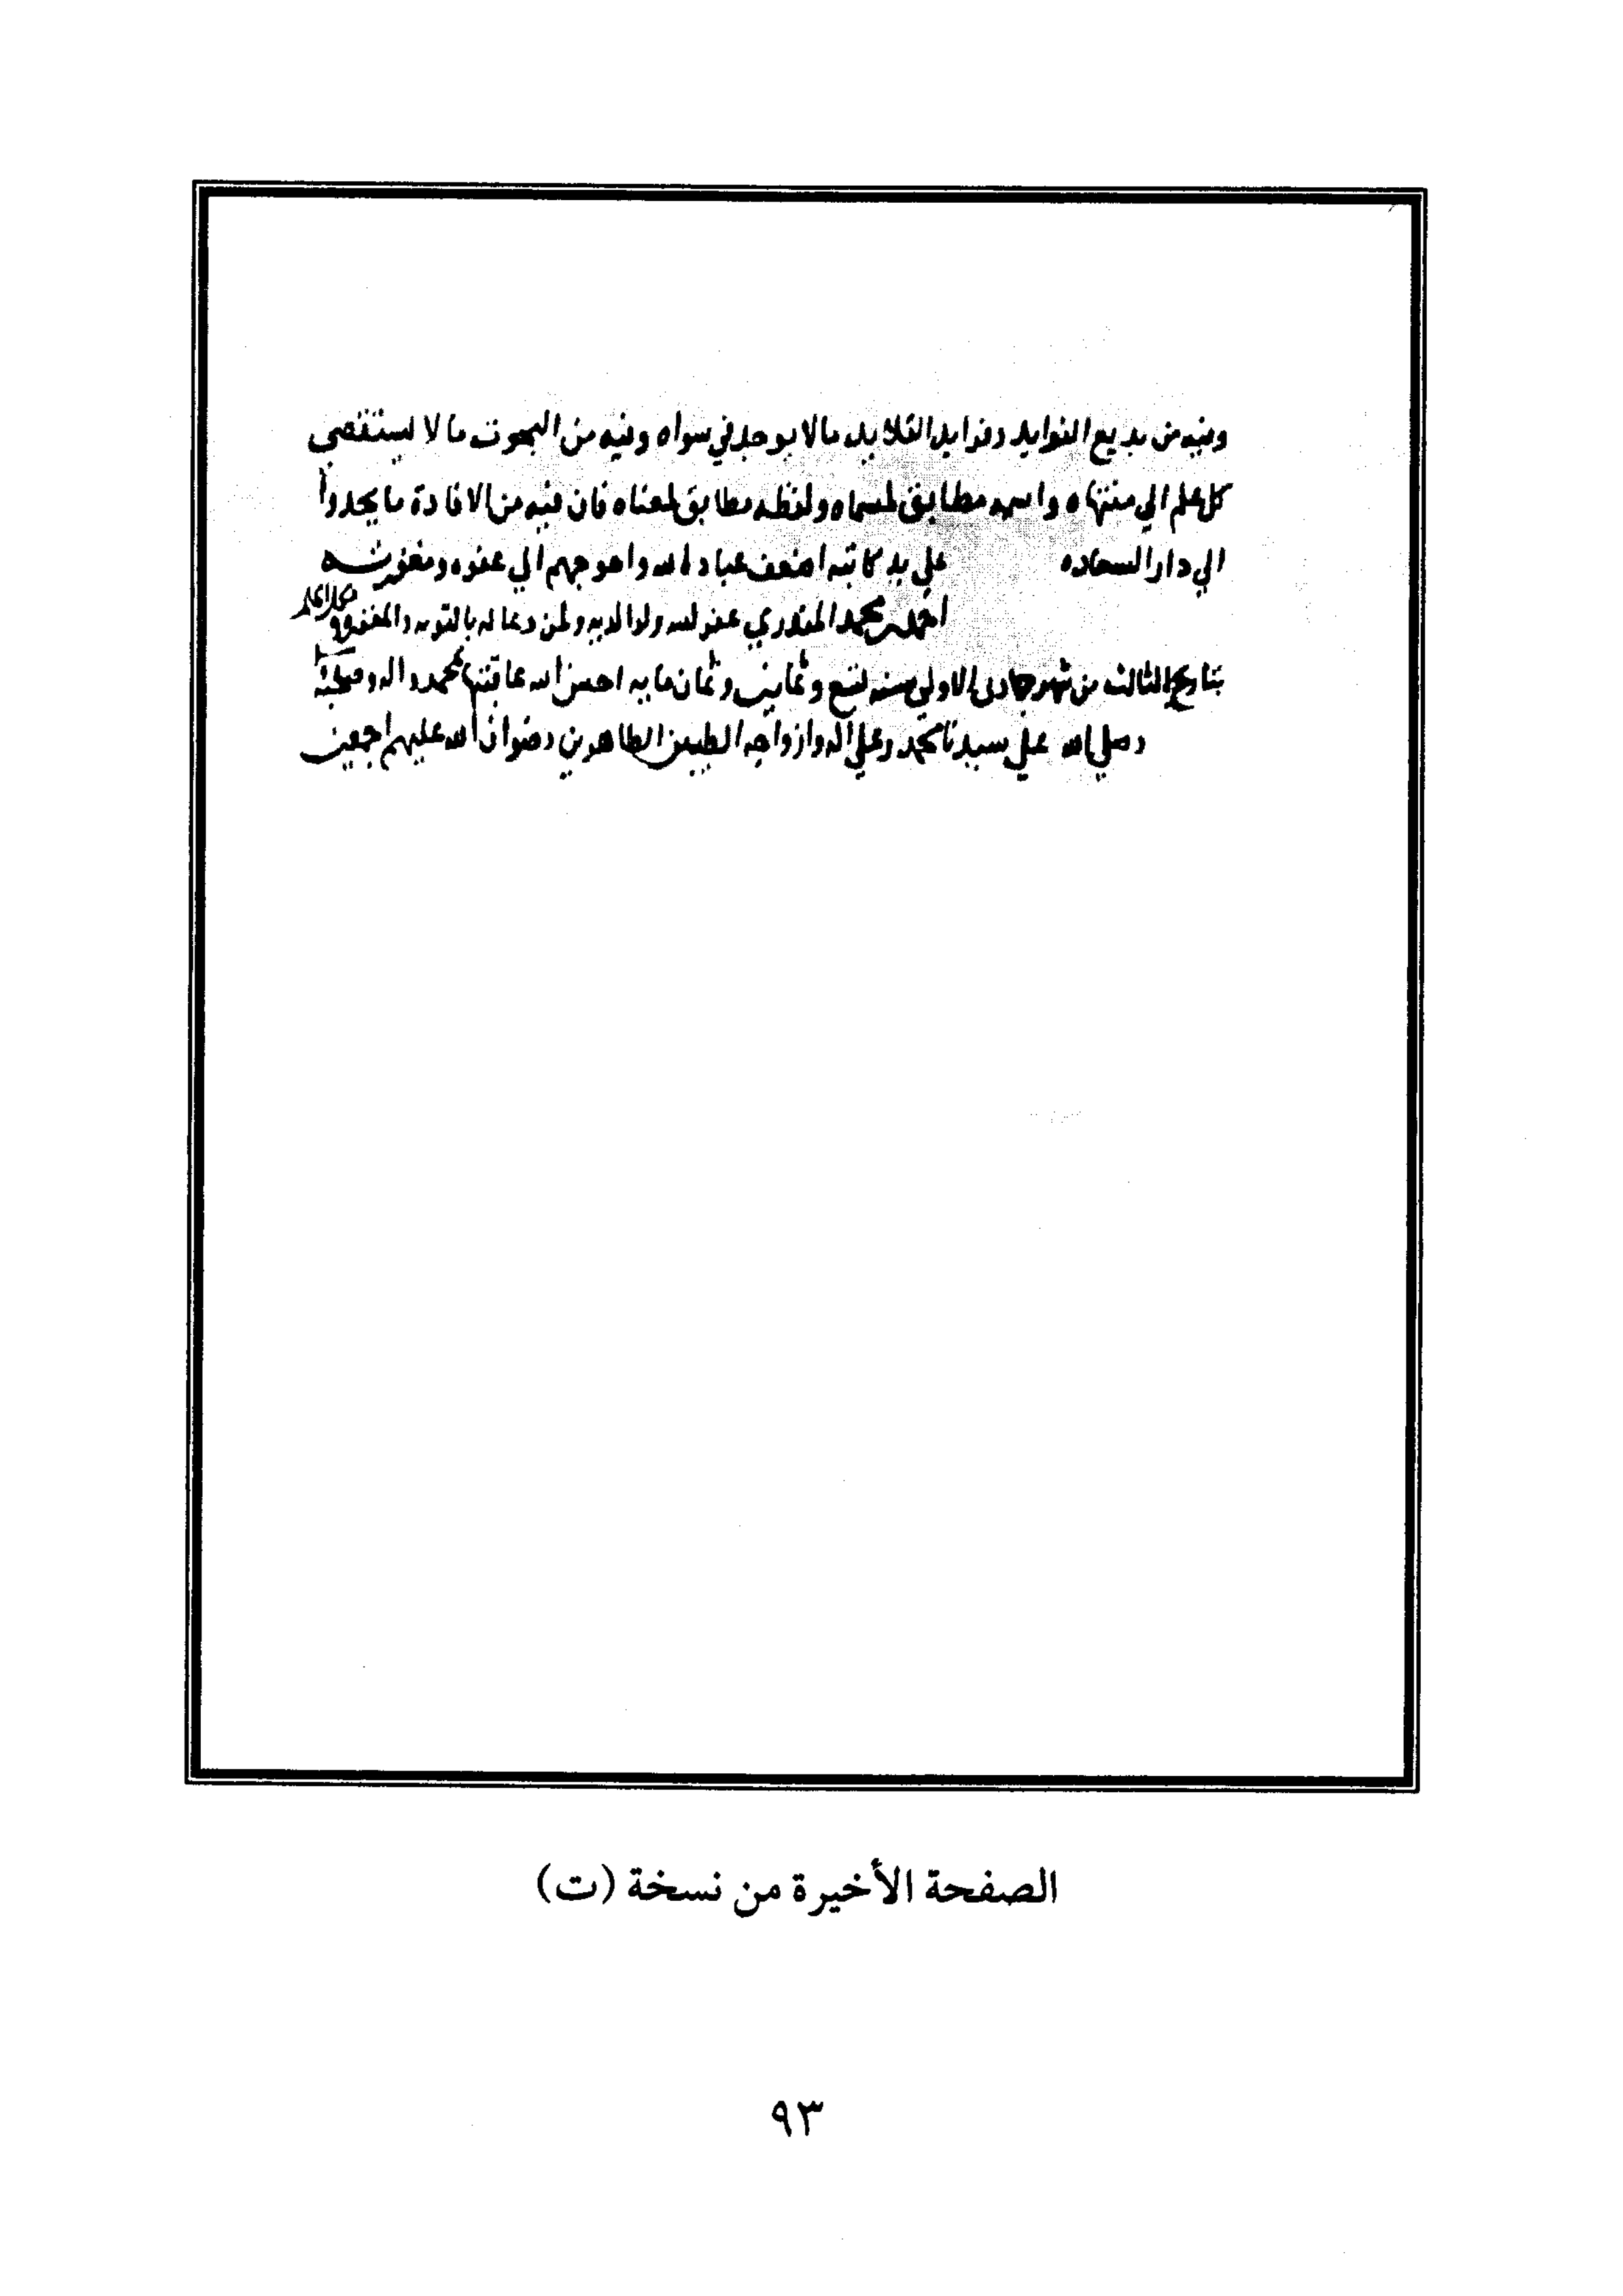 وفيه من بديع الفوايد وفرايد القلايد ما لا يوجد في سواه وفيه من البحوث ما لا يستقصي
كل علم الي منتهاه واسمه مطابق لمسماه ولفظه مطابق لمعناه فان فيه من الافادة ما يحدوا
الي دار السعاده علي يد كاتبه اضعف عباد الله واحوجهم الي عفوه ومغفرته
احمد بن محمد عفر الله ولوالديه ولمن دعا له بالتوبه والمغفره
بتاريخ الثالث من شهر جمادى الاولي سنه تسع وثمانين وثمان مايه احسن الله عاقبتها بمحمد واله وصحبه
وصلي الله علي سيدنا محمد وعلي اله وازواجه الطيبين الطاهرين رضوان الله عليهم اجمعين
الصفحة الأخيرة من نسخة (ت)
٩٣